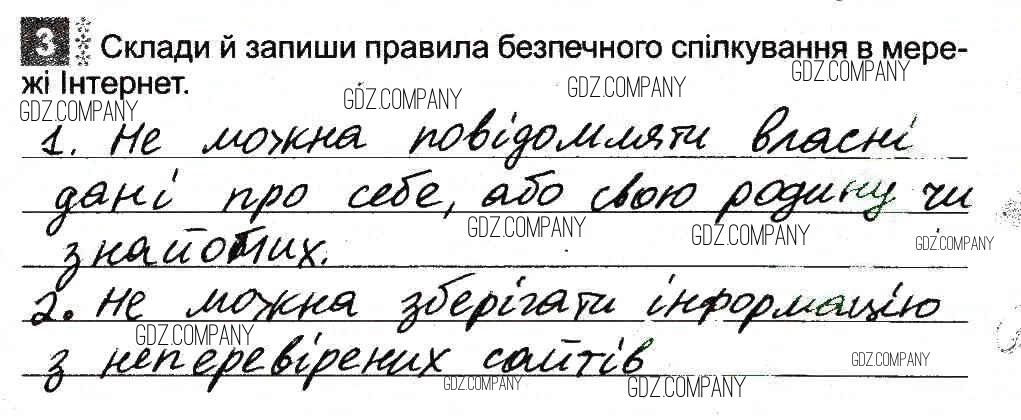 3 Склади й запиши правила безпечного спілкування в мере-
жі Інтернет.
GDZ.COMPANY GDZ.COMPANY GDZ.COMPANY GDZ.COMPANY
1. Не можна повідомляти власні
дані про себе, або свою родину чи
GDZ.COMPANY GDZ.COMPANY GDZ.COMPANY
знайомих.
2. Не можна зберігати інформацію
GDZ.COMPANY
з неперевірених сайтів
GDZ.COMPANY GDZ.COMPANY GDZ.COMPANY